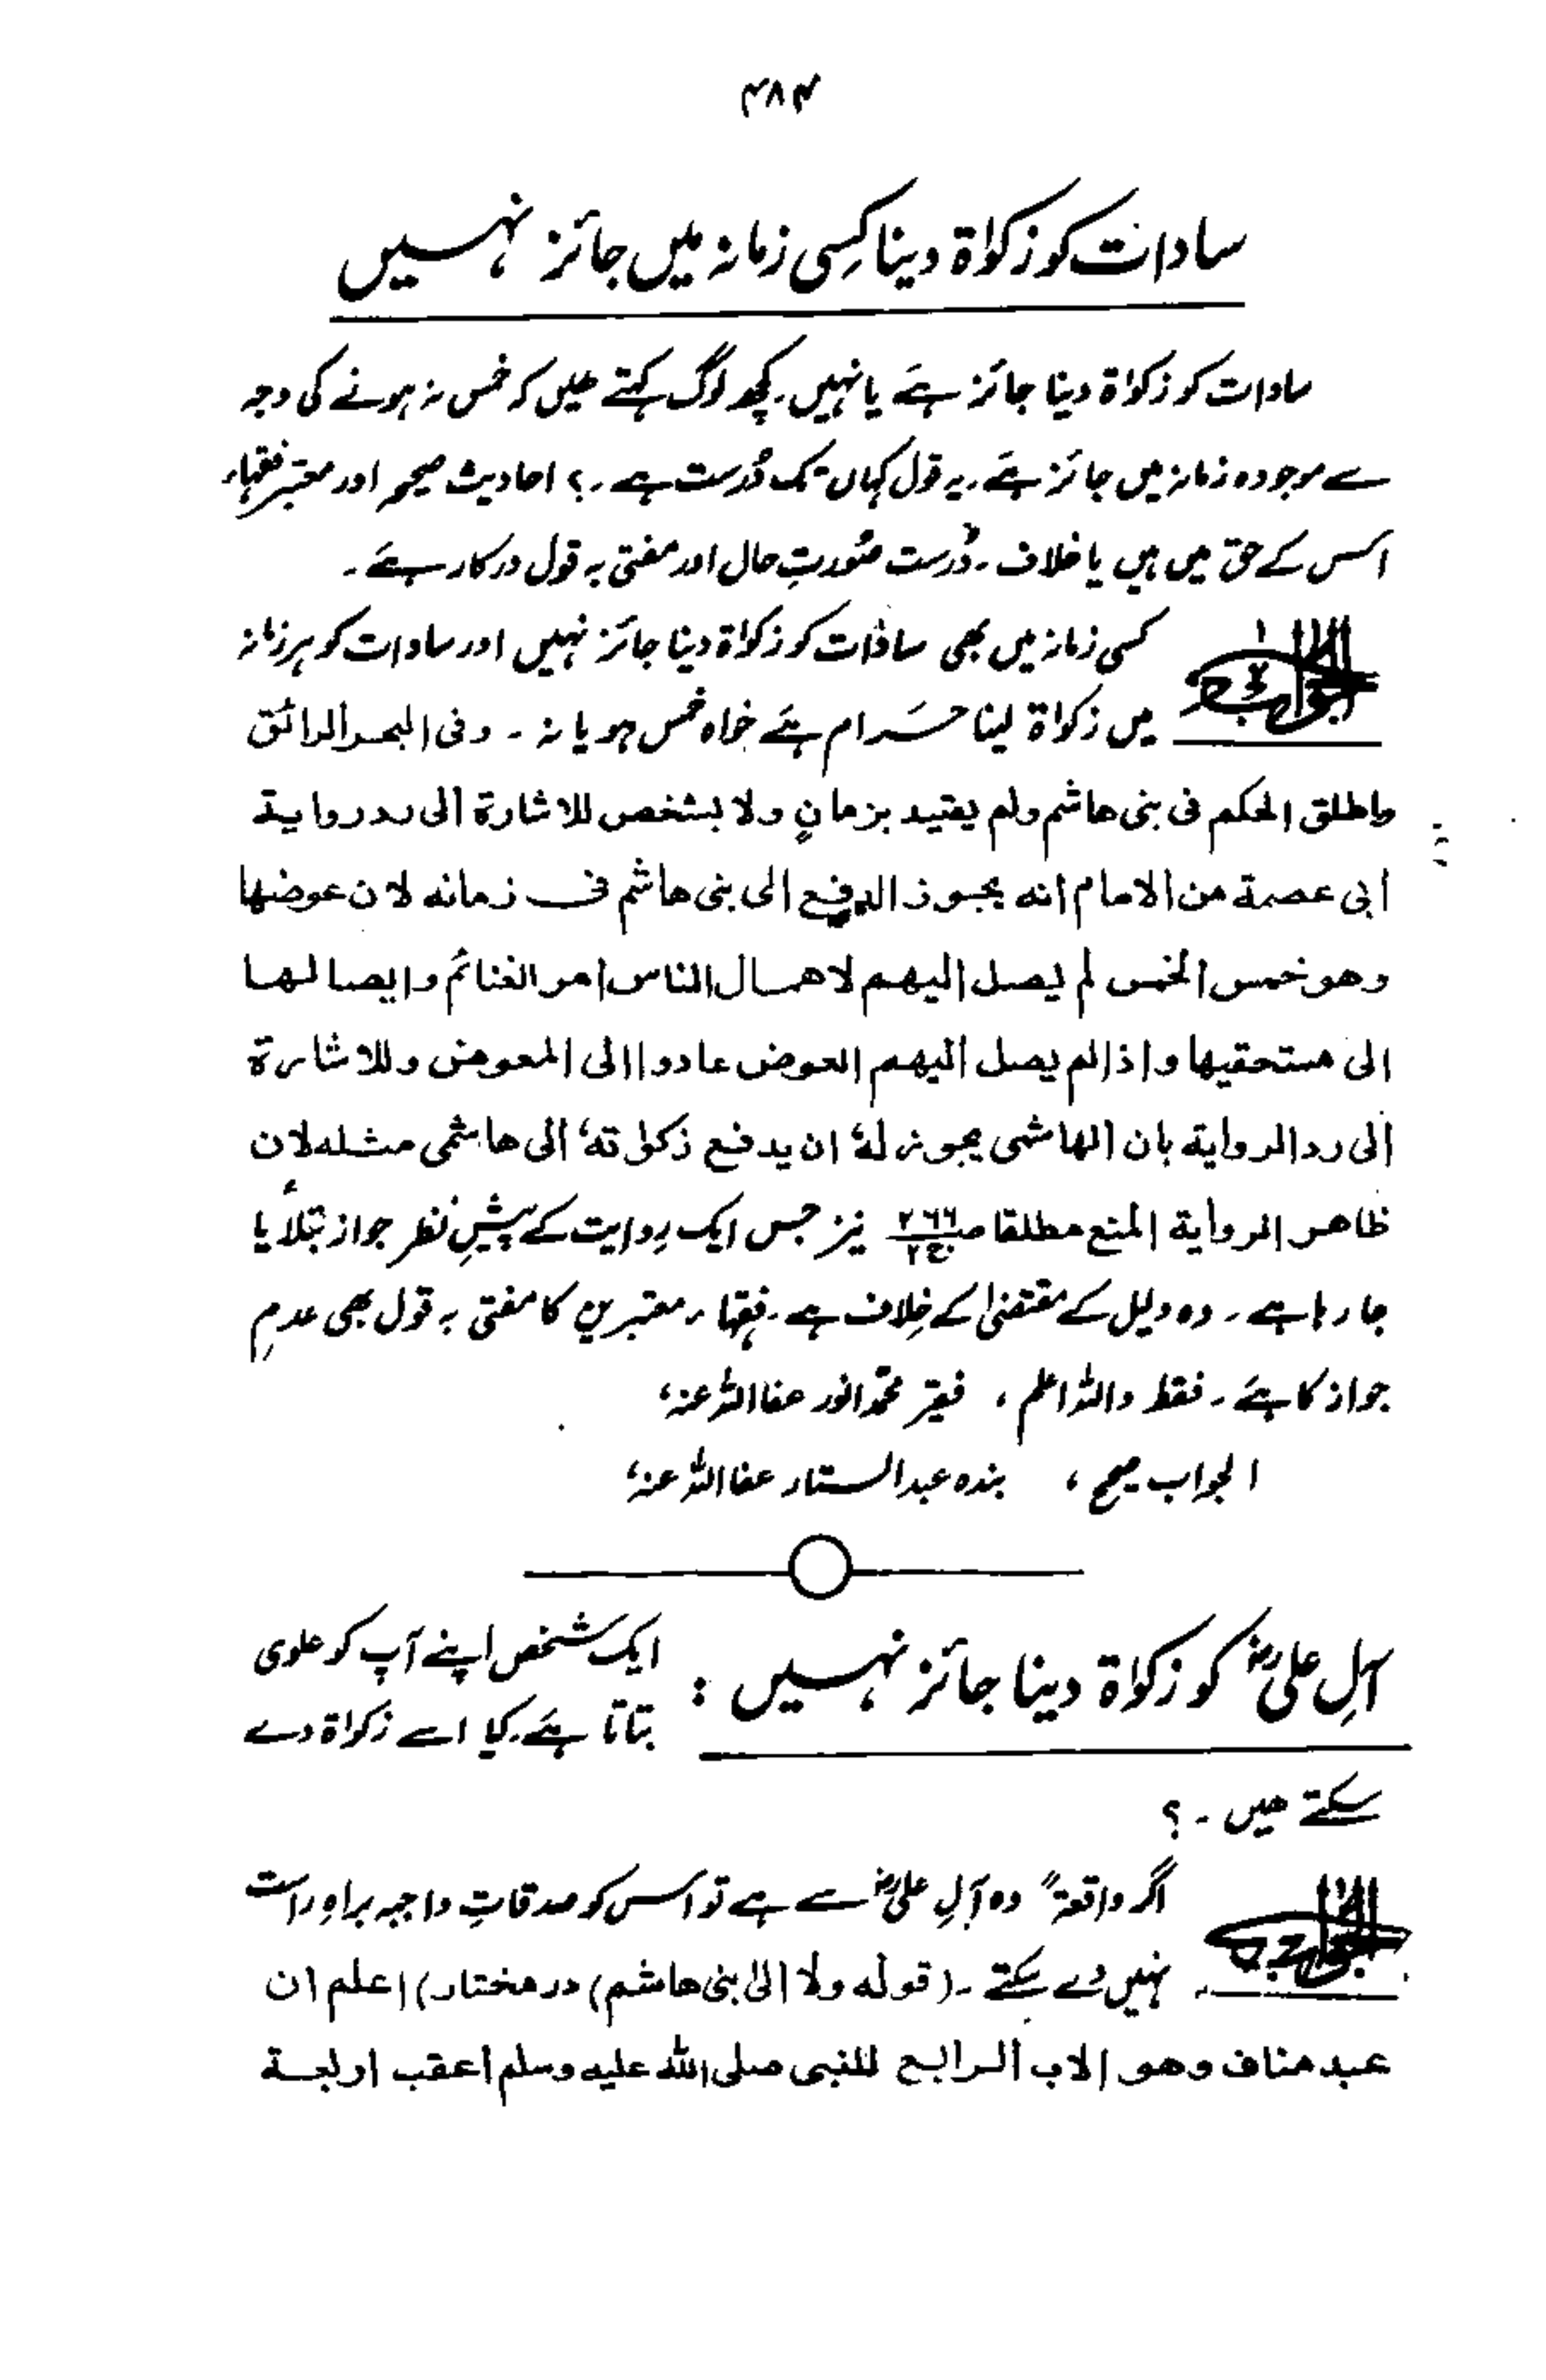 ۳۸۴
سادات کو زکوٰة دینا کِسی زمانہ میں جائز نہیں
سادات کو زکوٰة دینا جائز ہے یا نہیں۔ کچھ لوگ کہتے ہیں کہ خمس نہ ہونے کی وجہ
سے موجودہ زمانہ میں جائز ہے۔ یہ قول کہاں تک دُرست ہے۔؟ احادیث صحیحہ اور معتبر فقہاء
اس کے حق میں ہیں یا خلاف۔ دُرست صُورتِ حال اور مفتی بہ قول درکار ہے۔
الجواب
کسی زمانہ میں بھی سادات کو زکوٰة دینا جائز نہیں اور سادات کو ہر زمانہ
میں زکوٰة لینا حرام ہے خواہ خمس ہو یا نہ۔ وفی البحر الرائق
واطلق الحکم فی بنی ھاشم ولم یقید بزمانٍ ولا بشخص للاشارة الی رد روایة
ابی عصمة من الامام انه یجوز الدفع الی بنی ھاشم فی زمانه لان عوضھا
وھو خمس الخمس لم یصل الیھم لاھمال الناس امر الغنائم وایصالھا
الی مستحقیھا واذا لم یصل الیھم العوض عادوا الی المعوض وللاشارة
الی رد الروایة بان الھاشمی یجوز لهٗ ان یدفع زکوٰتهٗ الی ھاشمی مثله لان
ظاھر الروایة المنع مطلقا ص۲۶۶ ج۲ نیز جس ایک رِوایت کے پیشِ نظر جواز بتلایا
جا رہا ہے۔ وہ دلیل کے مقتضیٰ کے خِلاف ہے۔ فقہاء معتبرین کا مفتی بہ قول بھی عدمِ
جواز کا ہے۔ فقط واللہ اعلم، فقیر محمد انور عفا اللہ عنہٗ
الجواب صحیح، بندہ عبدالستار عفا اللہ عنہٗ
آلِ علیؓ کو زکوٰة دینا جائز نہیں :
ایک شخص اپنے آپ کو علوی
بتاتا ہے۔ کیا اسے زکوٰة دے
سکتے ہیں۔؟
الجواب
اگر واقعۃً وہ آلِ علیؓ سے ہے تو اس کو صدقاتِ واجبہ براہِ راست
نہیں دے سکتے۔ (قوله ولا الیٰ بنی ھاشم) در مختار) اعلم ان
عبد مناف وھو الاب الرابع للنبی صلی الله علیه وسلم اعقب اربعة